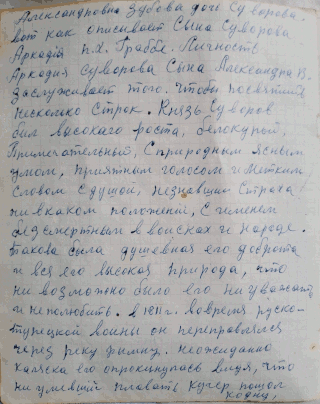 Александровна Зубова дочь Суворова.
вот как описывает Сына Суворова
Аркадія П.Х. Граббе. Личность
Аркадия Суворова Сына Александра В.
заслуживает того. Чтобы посвятить
несколько строк. Князь Суворов
был высокаго роста, белокурый,
Примечательный, С природным ясным
умом, приятным голосом и метким
словом С душой, незнавшии Страха
ни в каком положеніи, С именем
безсмертным в воисках и народе.
Такова была душевная его доброта
и вся его высокая природа, что
ни возможно было его ни уважать
и не полюбить. в 1811 г. во время руско-
турецкой воины он переправлялся
через реку рымник. неожиданно
коляска его опрокинулась видя, что
ни умевший плавать кучер пошол
ко дну,